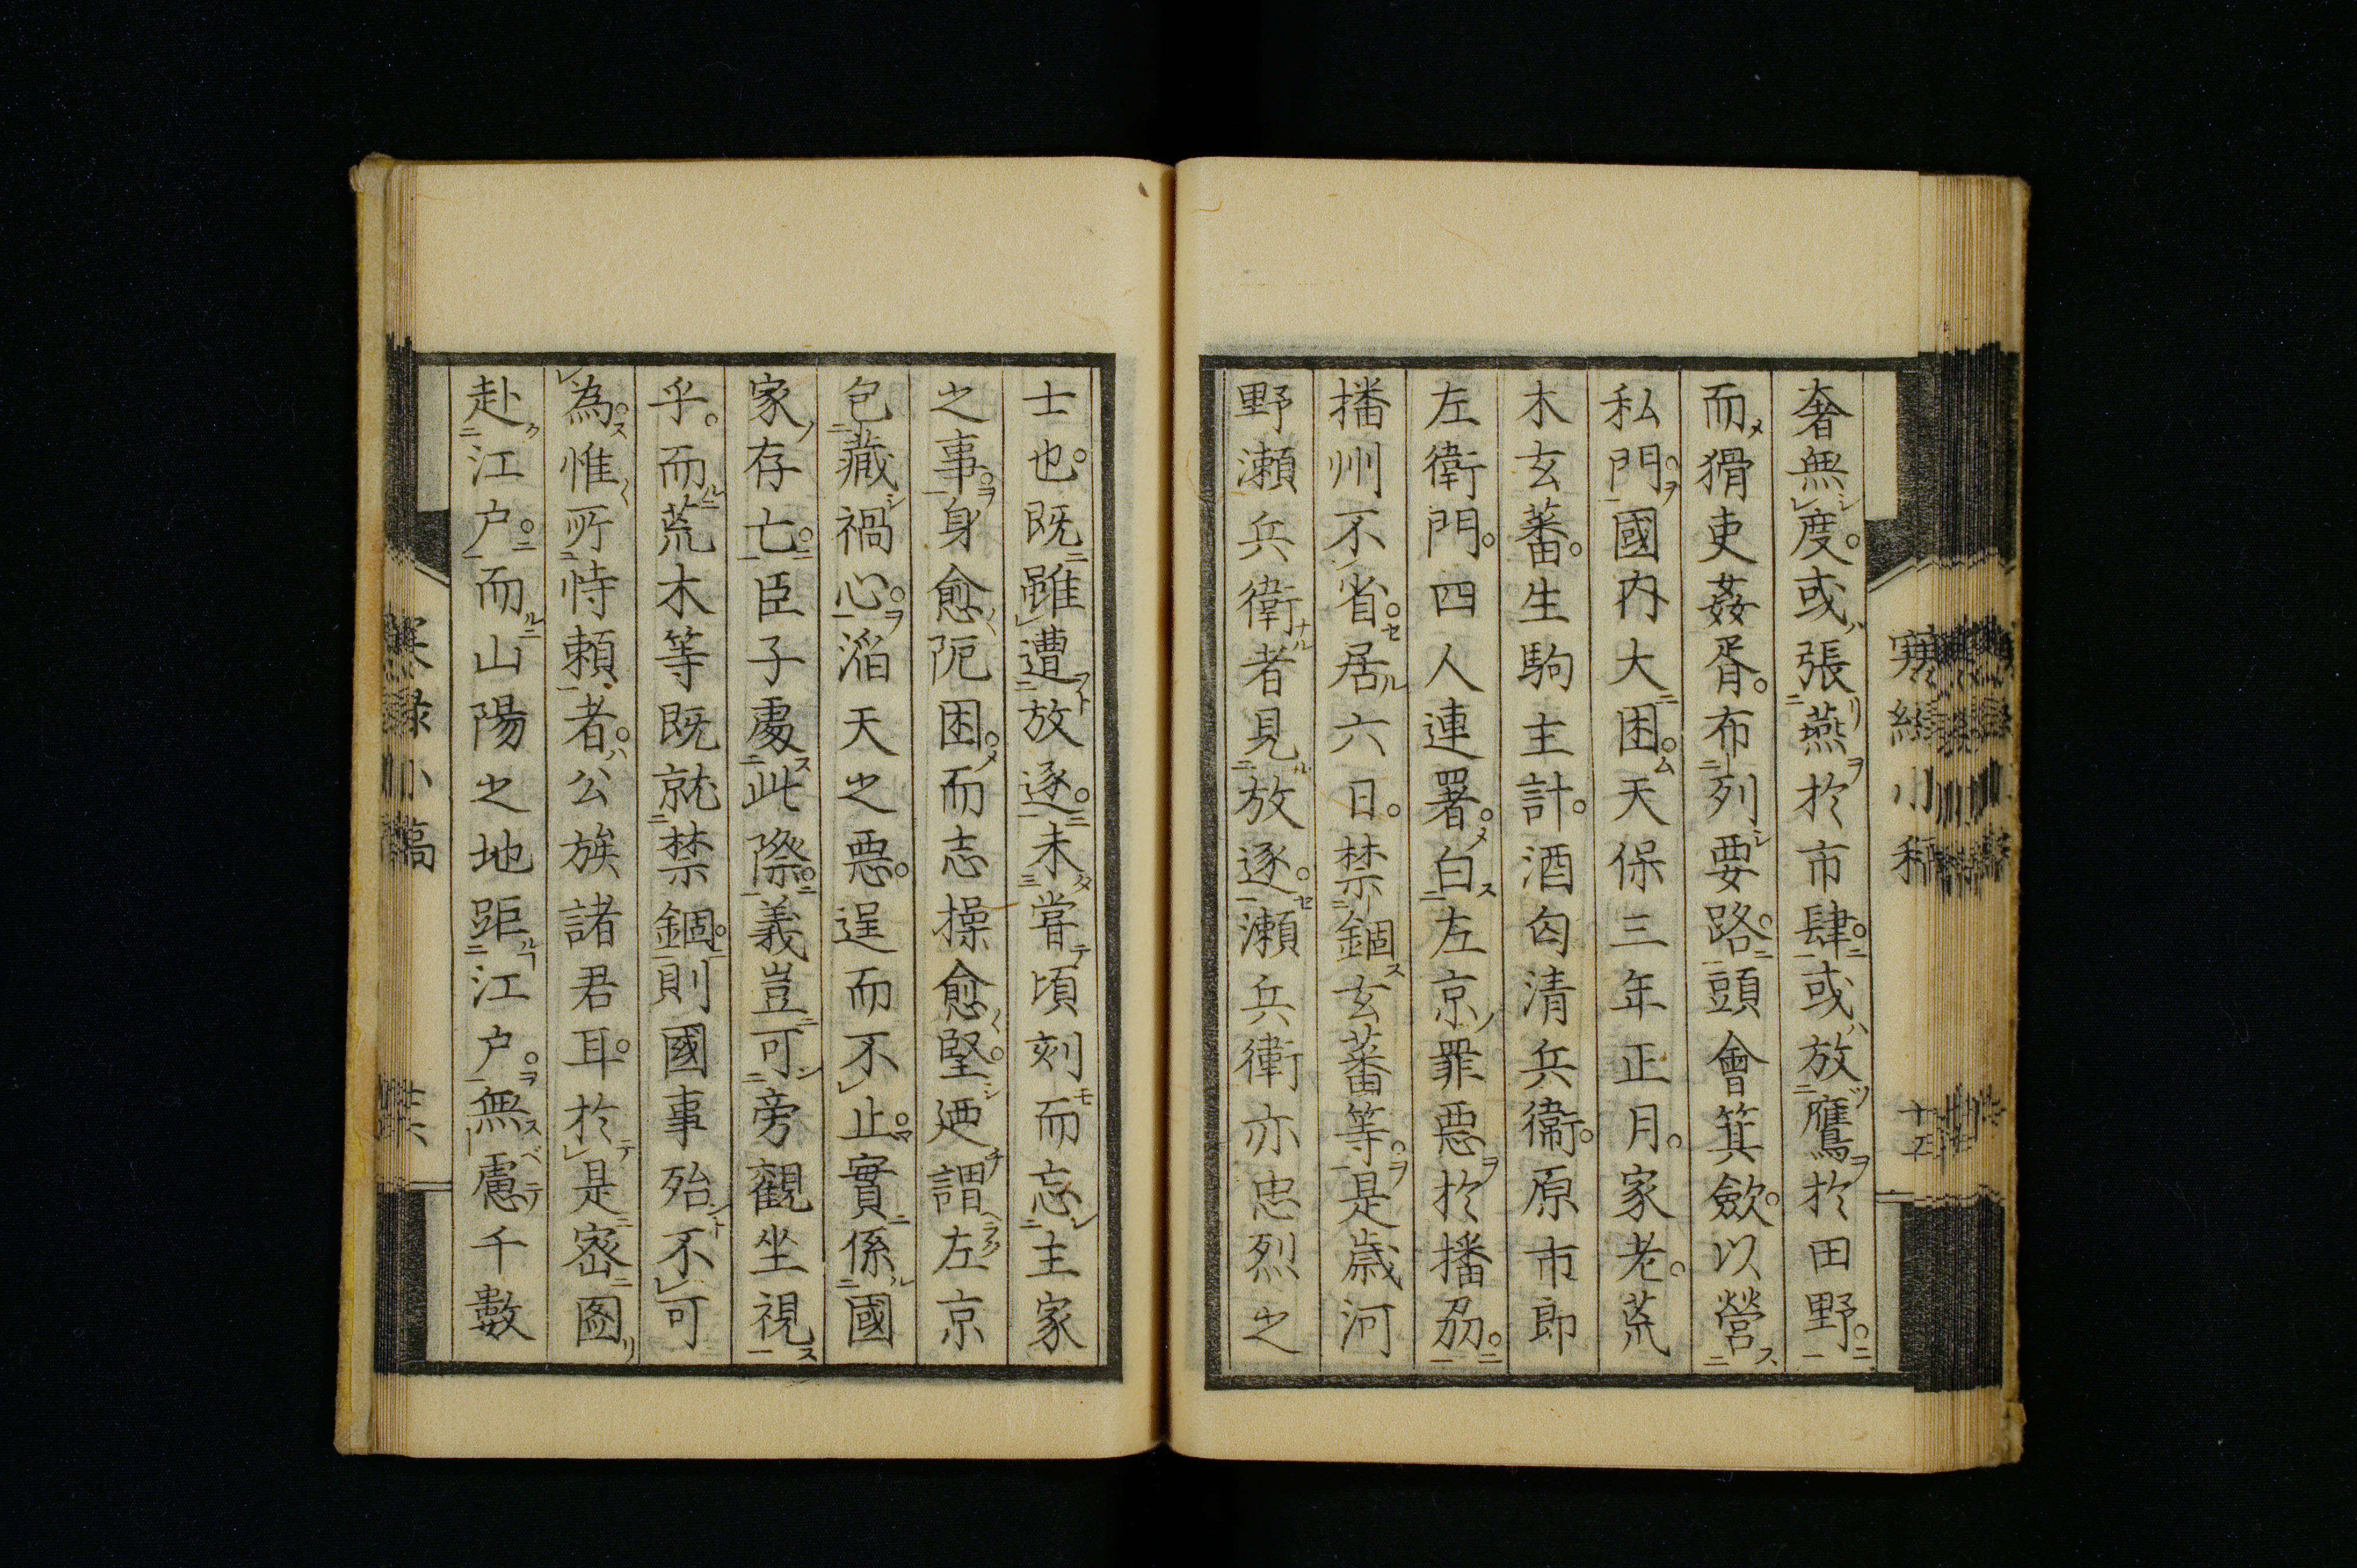 奢無度或張燕於市肆或放鷹於田野
而猾吏姦胥布列要路頭會箕歛以營
私門國内大困天保三年正月家老荒
木玄蕃生駒主計酒匂清兵衞原市郎
左衛門四人連署白左京罪惡於播刕
播州不省居六日禁錮玄蕃等是歳河
野瀬兵衛者見放逐瀬兵衛亦忠烈之
士也既雖遭放逐未嘗頃刻而忘主家
之事身愈阨困而志操愈堅廼謂左京
包藏禍心滔天之惡逞而不止實係國
家存亡臣子處此際義豈可旁觀坐視
乎而荒木等既就禁錮則國事殆不可
為惟所恃頼者公族諸君耳於是密圖
赴江户而山陽之地距江户無慮千數